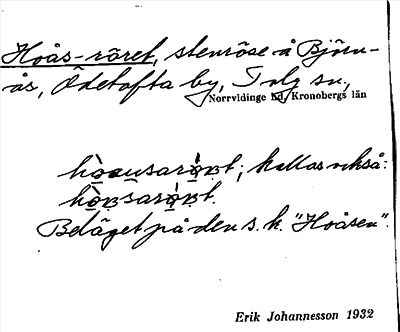 Hoås-röret, stenröse å Björn-
ås, Ödetofta by, Tolg sn.,
Norrvidinge hd, Kronobergs län
kallas också:
Beläget på den s.k. "Hoåsen".
Erik Johannesson 1932